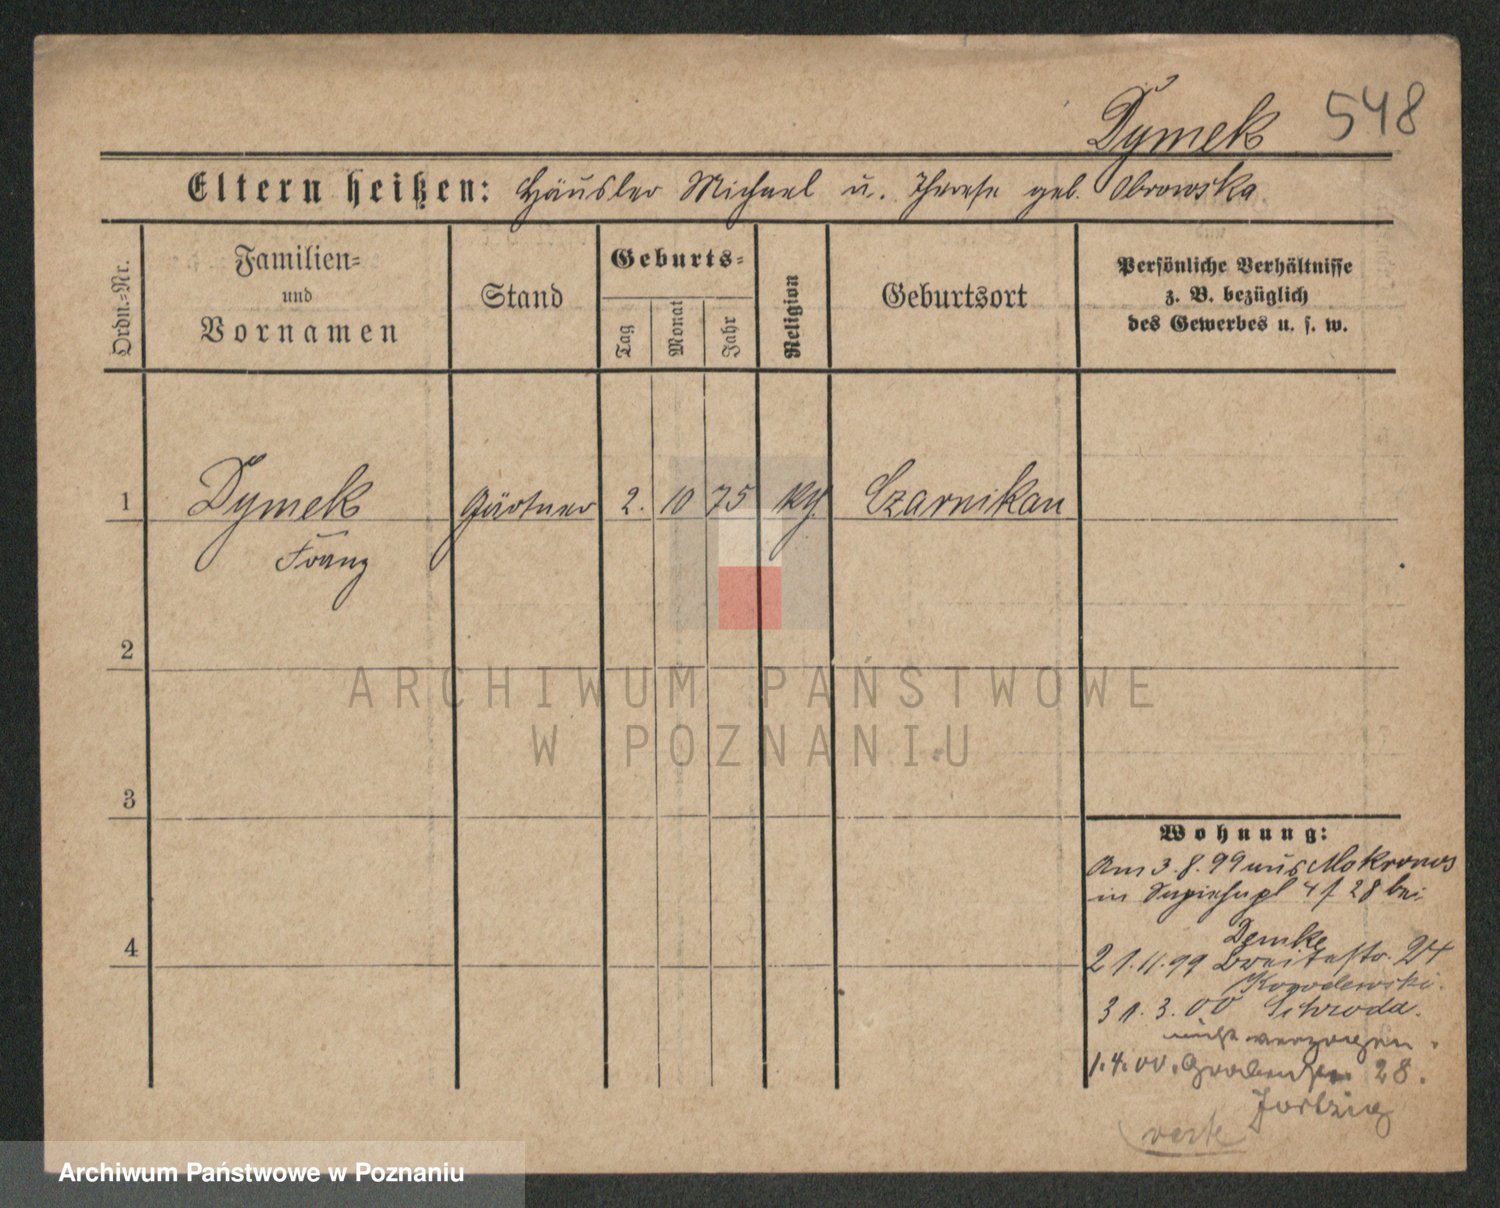 Dymek 548
Eltern heißen: Häusler Michael u. Therese geb. Obrowska
Ordn.-Nr.
Familien-
und
Vornamen
Stand
Geburts-
Tag
Monat
Jahr
Religion
Geburtsort
Persönliche Verhältnisse
z. B. bezüglich
des Gewerbes u. s. w.
1 Dymek Gärtner 2. 10 75 Czarnikau
Franz
2
3
4
ARCHIWUM PAŃSTWOWE
W POZNANIU
Wohnung:
Am 3.8.99 aus Mokronos
in 28 bei
Demke
21.11.99 Breitestr. 24
31.3.00 Schroda.
nicht verzogen.
1.4.00. 28.
verte
Archiwum Państwowe w Poznaniu